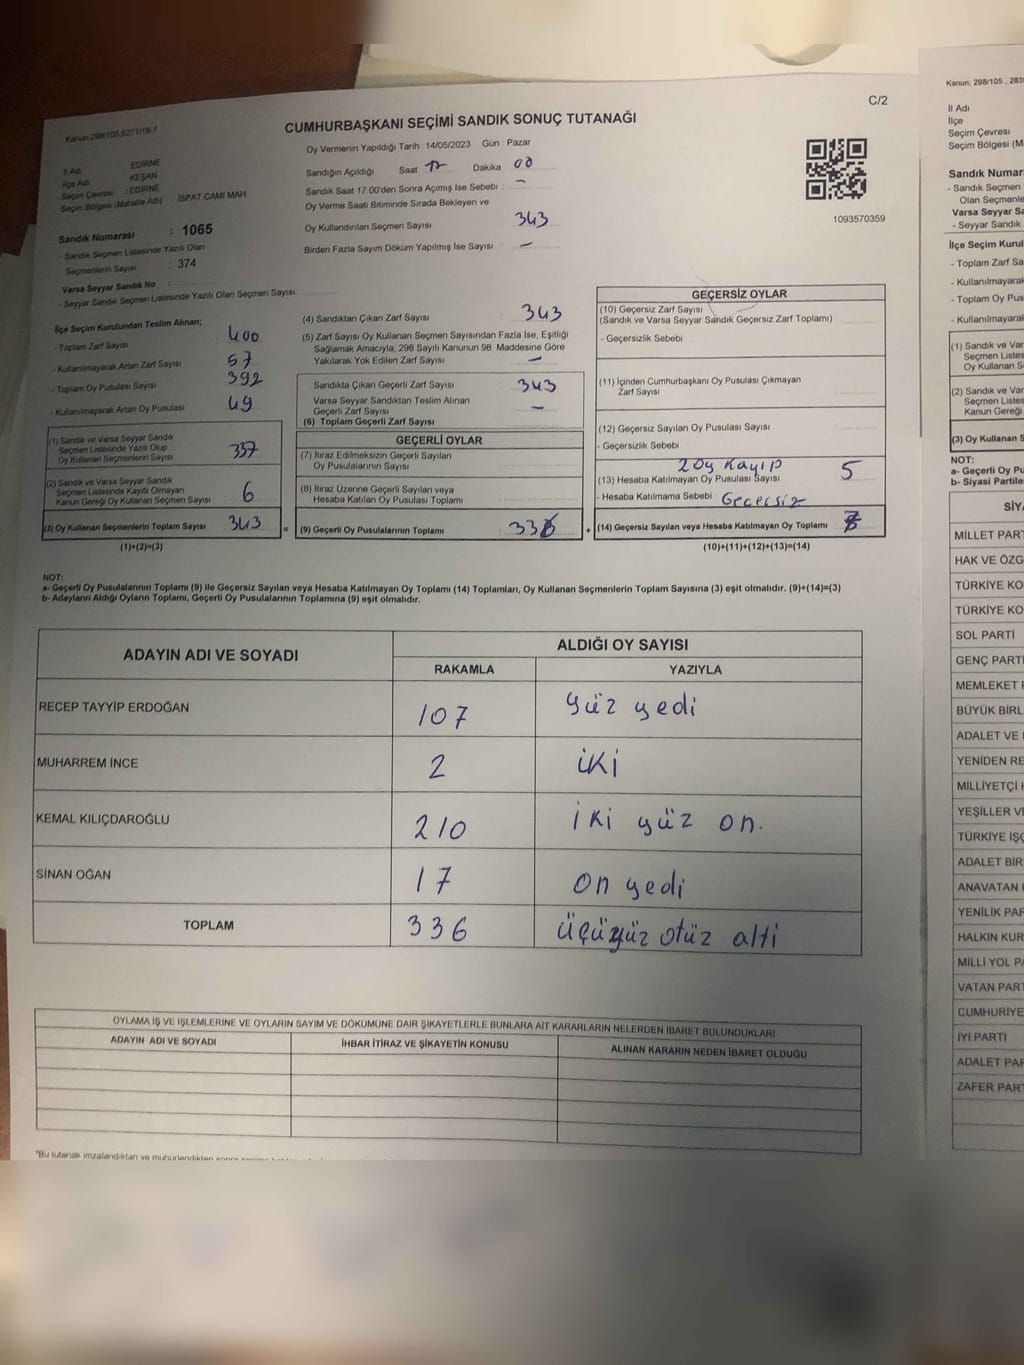 Kanun: 298/105,6271/18-1
C/2
CUMHURBAŞKANI SEÇİMİ SANDIK SONUÇ TUTANAĞI
İl Adı EDİRNE
İlçe Adı KEŞAN
Seçim Çevresi : EDİRNE
Seçim Bölgesi (Mahalle Adı) İSPAT CAMİ MAH
Sandık Numarası : 1065
- Sandık Seçmen Listesinde Yazılı Olan
Seçmenlerin Sayısı : 374
Varsa Seyyar Sandık No :
- Seyyar Sandık Seçmen Listesinde Yazılı Olan Seçmen Sayısı:
Oy Vermenin Yapıldığı Tarih : 14/05/2023 Gün : Pazar
Sandığın Açıldığı Saat 17 Dakika 00
Sandık Saat 17.00'den Sonra Açılmış İse Sebebi : -
Oy Verme Saati Bitiminde Sırada Bekleyen ve
Oy Kullandırılan Seçmen Sayısı 343
Birden Fazla Sayım Döküm Yapılmış İse Sayısı : -
1093570359
İlçe Seçim Kurulundan Teslim Alınan;
- Toplam Zarf Sayısı 400
- Kullanılmayarak Artan Zarf Sayısı 57
- Toplam Oy Pusulası Sayısı 392
- Kullanılmayarak Artan Oy Pusulası 49
(1) Sandık ve Varsa Seyyar Sandık
Seçmen Listesinde Yazılı Olup
Oy Kullanan Seçmenlerin Sayısı 337
(2) Sandık ve Varsa Seyyar Sandık
Seçmen Listesinde Kayıtlı Olmayan
Kanun Gereği Oy Kullanan Seçmen Sayısı 6
(3) Oy Kullanan Seçmenlerin Toplam Sayısı 343 =
(1)+(2)=(3)
(4) Sandıktan Çıkan Zarf Sayısı 343
(5) Zarf Sayısı Oy Kullanan Seçmen Sayısından Fazla İse, Eşitliği
Sağlamak Amacıyla, 298 Sayılı Kanunun 98. Maddesine Göre
Yakılarak Yok Edilen Zarf Sayısı -
Sandıkta Çıkan Geçerli Zarf Sayısı 343
Varsa Seyyar Sandıktan Teslim Alınan
Geçerli Zarf Sayısı -
(6) Toplam Geçerli Zarf Sayısı
GEÇERLİ OYLAR
(7) İtiraz Edilmeksizin Geçerli Sayılan
Oy Pusulalarının Sayısı
(8) İtiraz Üzerine Geçerli Sayılan veya
Hesaba Katılan Oy Pusulası Toplamı
(9) Geçerli Oy Pusulalarının Toplamı 336 +
GEÇERSİZ OYLAR
(10) Geçersiz Zarf Sayısı
(Sandık ve Varsa Seyyar Sandık Geçersiz Zarf Toplamı)
- Geçersizlik Sebebi :
(11) İçinden Cumhurbaşkanı Oy Pusulası Çıkmayan
Zarf Sayısı
(12) Geçersiz Sayılan Oy Pusulası Sayısı
- Geçersizlik Sebebi
2 Oy Kayıp
(13) Hesaba Katılmayan Oy Pusulası Sayısı 5
- Hesaba Katılmama Sebebi Geçersiz
(14) Geçersiz Sayılan veya Hesaba Katılmayan Oy Toplamı 7
(10)+(11)+(12)+(13)=(14)
NOT:
a- Geçerli Oy Pusulalarının Toplamı (9) ile Geçersiz Sayılan veya Hesaba Katılmayan Oy Toplamı (14) Toplamları, Oy Kullanan Seçmenlerin Toplam Sayısına (3) eşit olmalıdır. (9)+(14)=(3)
b- Adayların Aldığı Oyların Toplamı, Geçerli Oy Pusulalarının Toplamına (9) eşit olmalıdır.
ADAYIN ADI VE SOYADI ALDIĞI OY SAYISI
RAKAMLA YAZIYLA
RECEP TAYYİP ERDOĞAN 107 yüz yedi
MUHARREM İNCE 2 iki
KEMAL KILIÇDAROĞLU 210 iki yüz on.
SİNAN OĞAN 17 on yedi
TOPLAM 336 üçüyüz otüz alti
OYLAMA İŞ VE İŞLEMLERİNE VE OYLARIN SAYIM VE DÖKÜMÜNE DAİR ŞİKAYETLERLE BUNLARA AİT KARARLARIN NELERDEN İBARET BULUNDUKLARI
ADAYIN ADI VE SOYADI İHBAR İTİRAZ VE ŞİKAYETİN KONUSU ALINAN KARARIN NEDEN İBARET OLDUĞU
*Bu tutanak imzalandıktan ve mühürlendikten sonra
Kanun: 298/105 , 283
İl Adı
İlçe
Seçim Çevresi
Seçim Bölgesi (M
Sandık Numar
- Sandık Seçmen
Olan Seçmenle
Varsa Seyyar Sa
- Seyyar Sandık
İlçe Seçim Kurul
- Toplam Zarf Sa
- Kullanılmayarak
- Toplam Oy Pus
- Kullanılmayarak
(1) Sandık ve Var
Seçmen Listes
Oy Kullanan S
(2) Sandık ve Var
Seçmen Listes
Kanun Gereği
(3) Oy Kullanan S
NOT:
a- Geçerli Oy Pu
b- Siyasi Partile
SİY
MİLLET PART
HAK VE ÖZG
TÜRKİYE KO
TÜRKİYE KO
SOL PARTİ
GENÇ PARTİ
MEMLEKET P
BÜYÜK BİRL
ADALET VE
YENİDEN RE
MİLLİYETÇİ H
YEŞİLLER VE
TÜRKİYE İŞÇ
ADALET BİR
ANAVATAN
YENİLİK PAR
HALKIN KUR
MİLLİ YOL PA
VATAN PART
CUMHURİYE
İYİ PARTİ
ADALET PAR
ZAFER PART